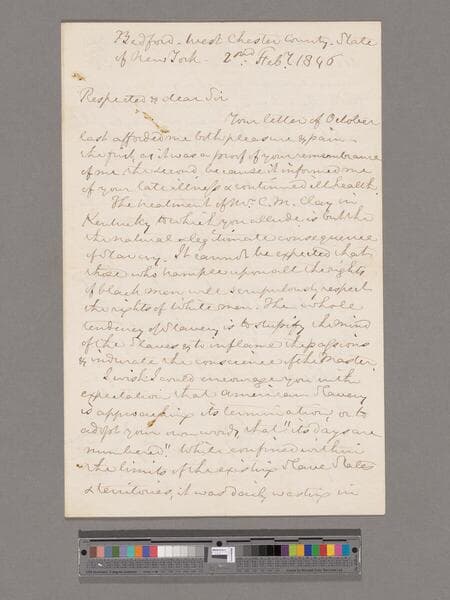 Bedford - West Chester County - State
of New York - 2nd Feby. 1846
Respected & dear Sir
Your letter of October
last afforded me both pleasure & pain -
the first, as it was a proof of your remembrance
of me the second, because it informed me
of your late illness & continued ill health.
The treatment of Mr. C. M. Clay in
Kentucky to which you allude is but the
the natural & legitimate consequence
of slavery. It cannot be expected that
those who trample upon all the rights
of black men will scrupulously respect
the rights of white men. The whole
tendency of slavery is to stupify the mind
of the slaves & to inflame the passions
& indurate the conscience of the master.
I wish I could encourage you in the
expectation that American slavery
is approaching its termination, or to
adopt your own words, that "its days are
numbered." While confined within
the limits of the existing slave States
& territories, it was daily wasting in